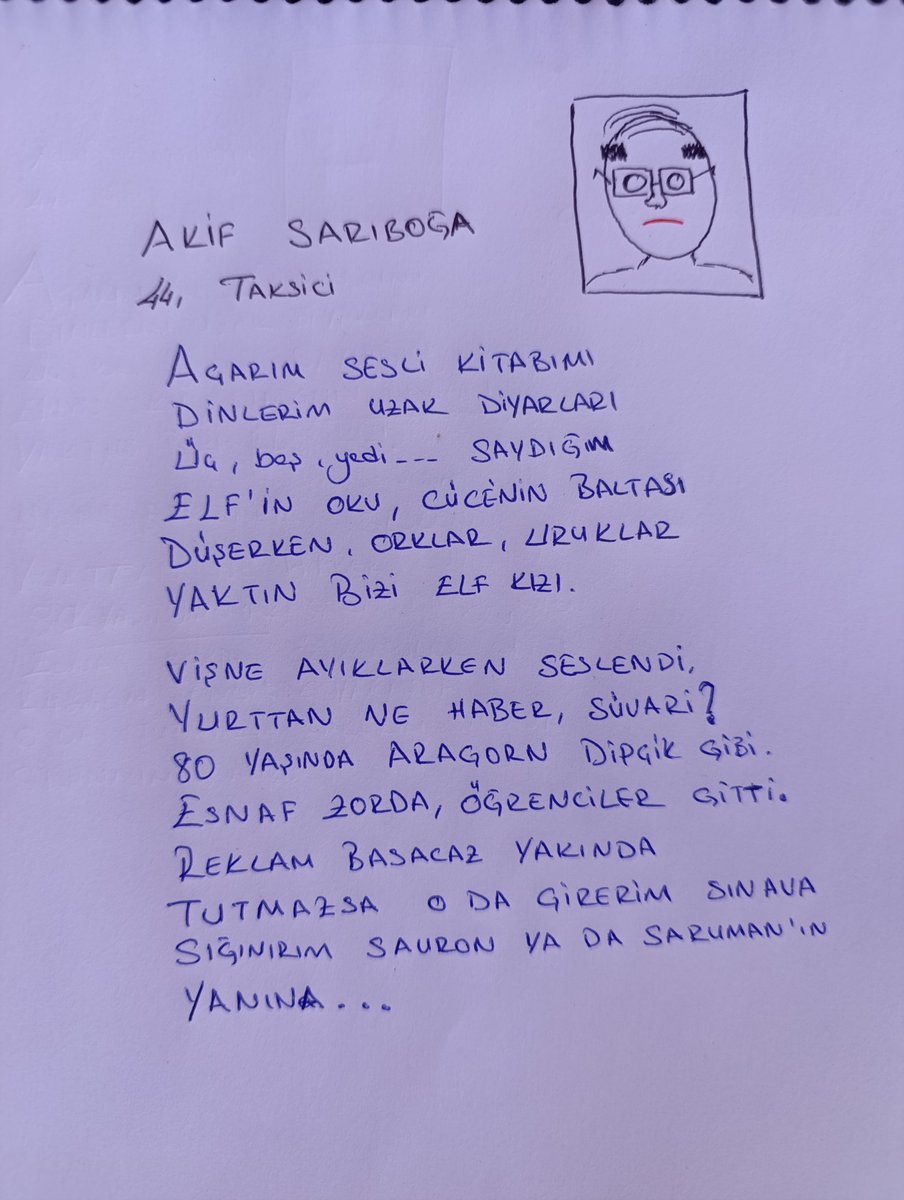 AKİF SARIBOĞA
44, TAKSİCİ
AÇARIM SESLİ KİTABIMI
DİNLERİM UZAK DİYARLARI
Üç, beş, yedi--- SAYDIĞIM
ELF'İN OKU, CÜCENİN BALTASI
DÜŞERKEN, ORKLAR, URUKLAR
YAKTIN BİZİ ELF KIZI.
VİŞNE AYIKLARKEN SESLENDİ,
YURTTAN NE HABER, SÜVARİ?
80 YAŞINDA ARAGORN DİPÇİK GİBİ.
ESNAF ZORDA, ÖĞRENCİLER GİTTİ.
REKLAM BASACAZ YAKINDA
TUTMAZSA O DA GİRERİM SINAVA
SIĞINIRIM SAURON YA DA SARUMAN'IN
YANINA...